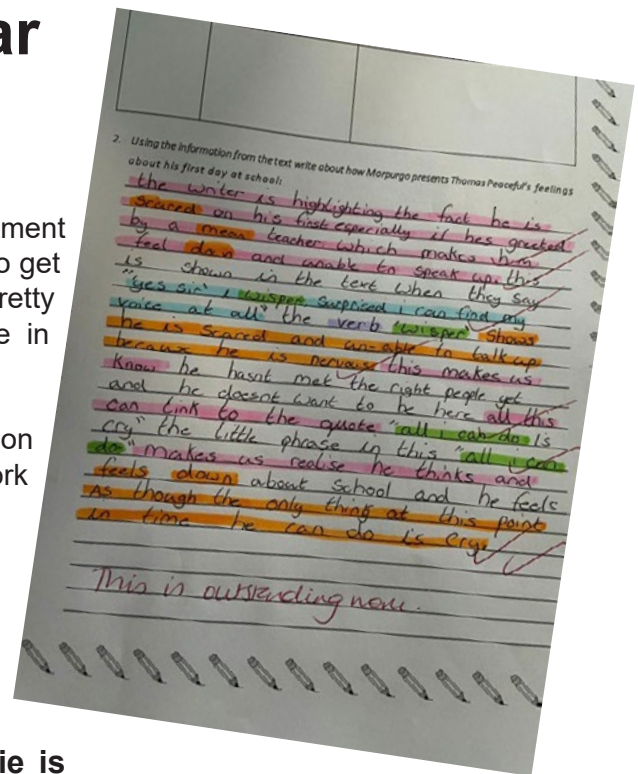 ar
ment
o get
retty
e in
on
ork
ie is
2. Using the information from the text write about how Morpurgo presents Thomas Peaceful's feelings
about his first day at school:
the writer is highlighting the fact he is
scared on his first especially if hes greeted
by a mean teacher which makes him
feel down and unable to speak up. this
is shown in the text when they say
"yes sir" I wisper surprised i can find my
voice at all" the verb 'wisper' shows
he is scared and un-able to talk up
because he is nervous this makes us
Know he hasnt met the right people yet
and he doesnt want to be here all this
can link to the quote "all i can do is
cry" the little phrase in this "all i can
do" makes us realise he thinks and
feels down about school and he feels
As though the only thing at this point
in time he can do is cry.
This is outstanding